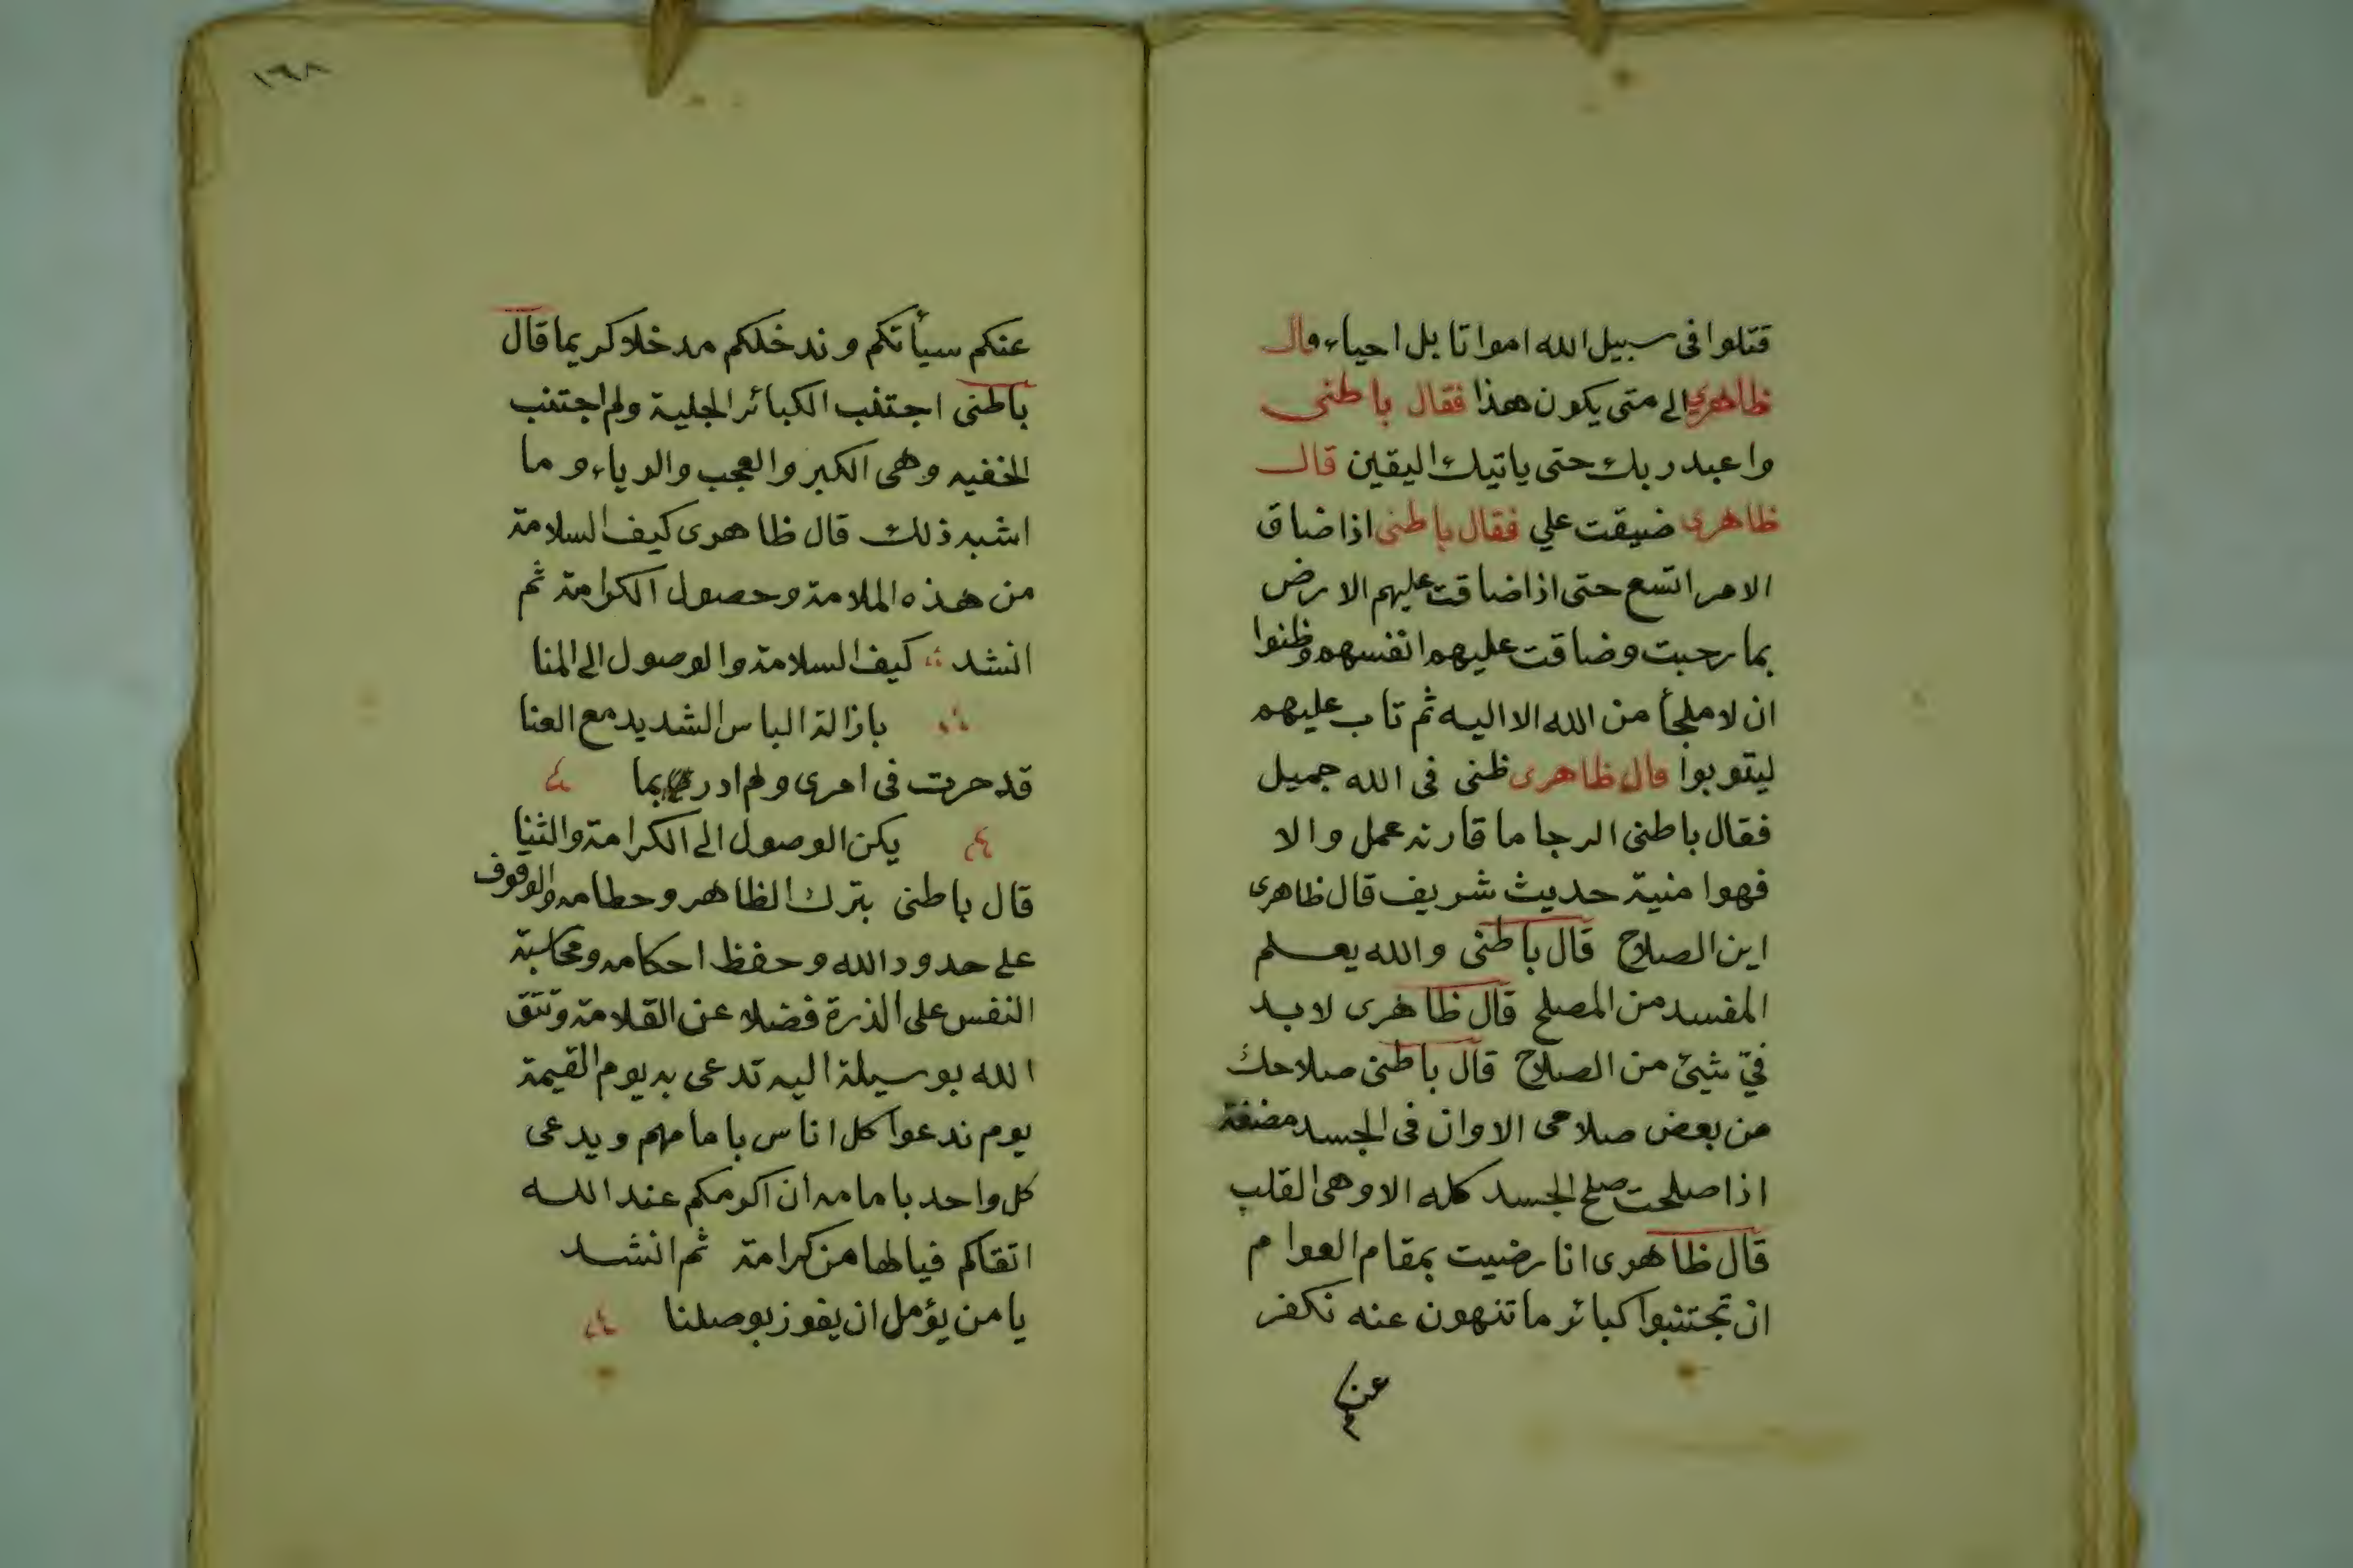 قتلوا فى سبيل الله امواتا بل احياء قال
ظاهري الى متى يكون هذا فقال باطنى
واعبد ربك حتى ياتيك اليقين قال
ظاهرى ضيقت علي فقال باطنى اذا ضاق
الامر اتسع حتى اذا ضاقت عليهم الارض
بما رحبت وضاقت عليهم انفسهم وظنوا
ان لا ملجأ من الله الا اليه ثم تاب عليهم
ليتوبوا قال ظاهرى ظنى فى الله جميل
فقال باطنى الرجا ما قارنه عمل والا
فهوا منية حديث شريف قال ظاهرى
اين الصلاح قال باطنى والله يعلم
المفسد من المصلح قال ظاهرى لابد
فيّ شيئ من الصلاح قال باطنى صلاحك
من بعض صلاحى الا وان فى الجسد مضغة
اذا صلحت صلح الجسد كله الا وهى القلب
قال ظاهرى انا رضيت بمقام العوام
ان تجتنبوا كبائر ما تنهون عنه نكفر
عنكم
١٦٨
عنكم سيأتكم وندخلكم مدخلا كريما قال
باطنى اجتنب الكبائر الجلية ولم اجتنب
الخفيه وهى الكبر والعجب والرياء وما
اشبه ذلك قال ظاهرى كيف السلامة
من هذه الملامة وحصول الكرامة ثم
انشد كيف السلامة والوصول الى المنا
بازالة الباس الشديد مع العنا
قد حرت فى امرى ولم ادر بما
يكن الوصول الى الكرامة والثنا
قال باطنى بترك الظاهر وحطامه والوقوف
على حدود الله وحفظ احكامه ومحاسبة
النفس على الذرة فضلا عن القلامة وتتق
الله بوسيلة اليه تدعى به يوم القيمة
يوم ندعوا كل اناس بامامهم ويدعى
كل واحد بامامه ان اكرمكم عند الله
اتقاكم فيا لها من كرامة ثم انشد
يا من يؤمل ان يفوز بوصلنا